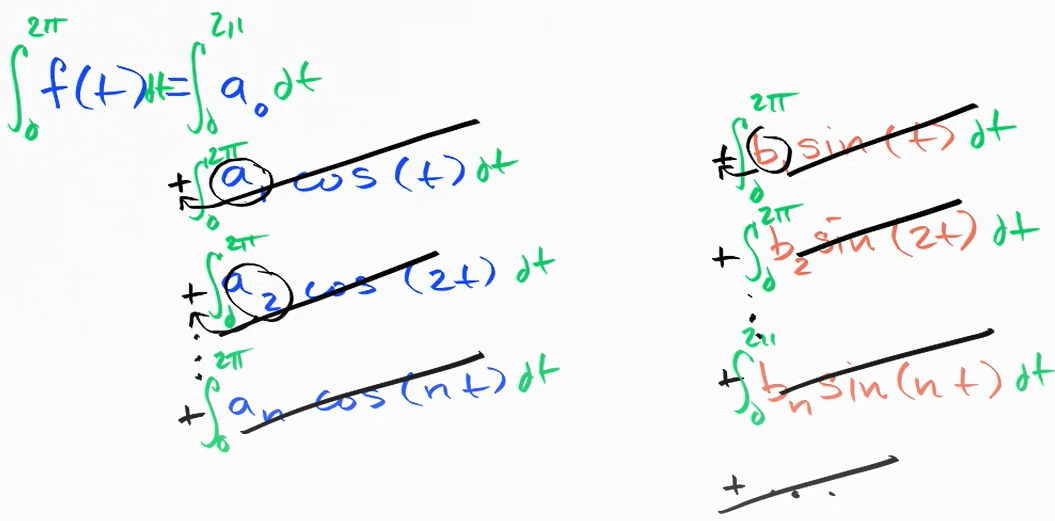 ∫₀^2π f(t)dt = ∫₀^2π a₀ dt
+ ∫₀^2π a₁ cos(t) dt + ∫₀^2π b₁ sin(t) dt
+ ∫₀^2π a₂ cos(2t) dt + ∫₀^2π b₂ sin(2t) dt
⋮ ⋮
+ ∫₀^2π aₙ cos(nt) dt + ∫₀^2π bₙ sin(nt) dt
+ ...